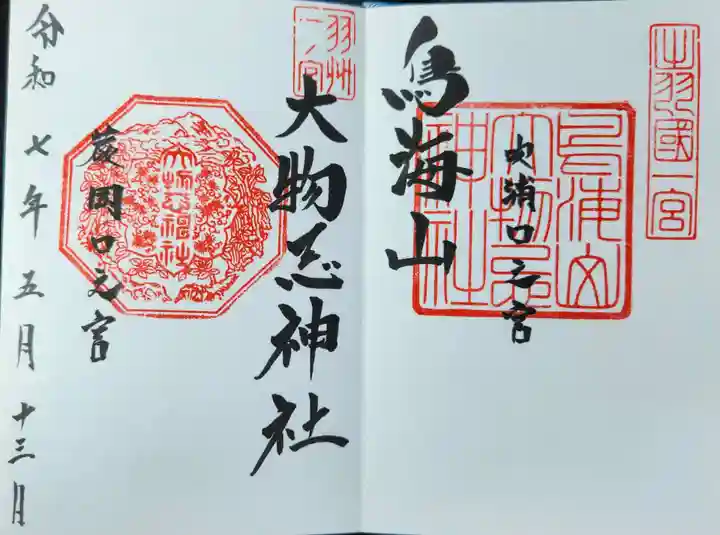 出羽國一宮
鳥海山大物忌神社
吹浦口之宮
鳥海山
羽州一ノ宮
大物忌神社
大物忌神社
蕨岡口之宮
令和七年五月十三日